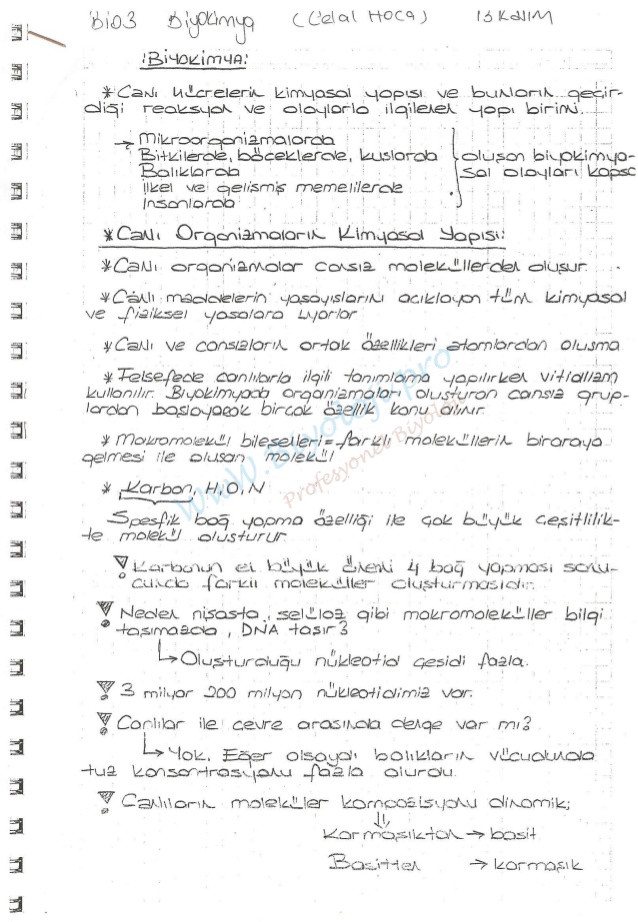 Bio3 Biyokimya (Celal HOCA) 13 KASIM
:BİYOKİMYA:
* Canlı hücrelerin kimyasal yapısı ve bunların geçir-
diği reaksiyon ve olaylarla ilgilenen yapı birimi.
→ Mikroorganizmalarda
Bitkilerde, böceklerde, kuslarda
Balıklarda
İlkel ve gelişmiş memelilerde
İnsanlarda
oluşan biyokimya-
sal olayları kapsa
* Canlı Organizmaların Kimyasal Yapısı:
* Canlı organizmalar cansız moleküllerden oluşur.
* Canlı maddelerin yaşayışlarını açıklayan tüm kimyasal
ve fiziksel yasalara uyarlar
* Canlı ve cansızların ortak özellikleri atomlardan oluşma
* Felsefede canlılarla ilgili tanımlama yapılırken vitalizm
kullanılır. Biyokimyada organizmaları oluşturan cansız grup-
lardan başlayarak birçok özellik konu alınır.
* Makromolekül bileşenleri = farklı moleküllerin biraraya
gelmesi ile oluşan molekül
* Karbon, H, O, N
Spesfik bağ yapma özelliği ile çok büyük çeşitlilik-
te molekül oluşturur.
! Karbonun en büyük önemi 4 bağ yapması sonu-
cunda farklı moleküller oluşturmasıdır.
! Neden nişasta, selüloz gibi makromoleküller bilgi
taşımazda, DNA taşır?
↳ Oluşturduğu nükleotid çeşidi fazla.
! 3 milyar 200 milyon nükleotidimiz var.
! Canlılar ile çevre arasında denge var mı?
↳ Yok. Eğer olsaydı balıkların vücudunda
tuz konsantrasyonu fazla olurdu.
! Canlıların moleküler kompozisyonu dinamik;
⇓
Karmaşıktan → basit
Basitten → karmaşık
www.Biyologlar.pro
Profesyonel Biyolog